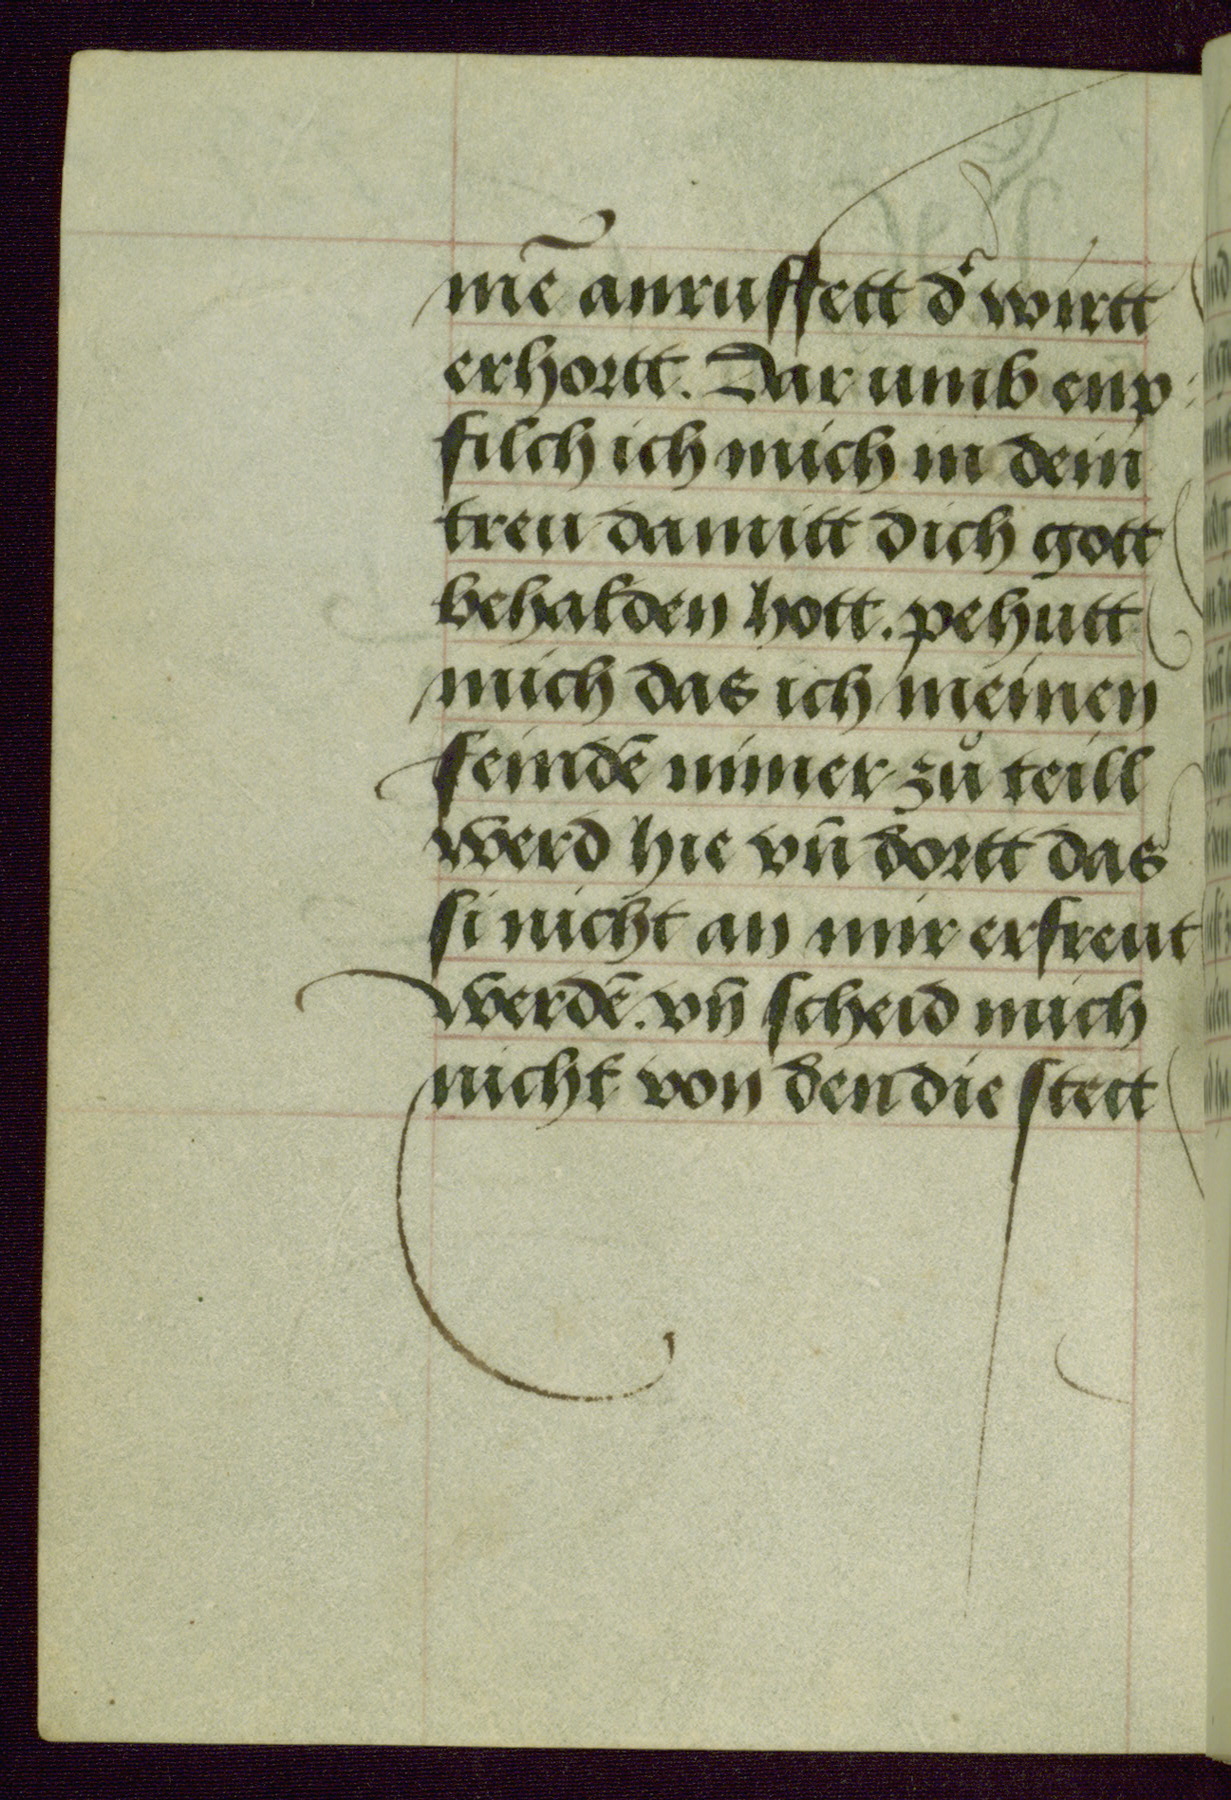 mē anruffett dˢ wirtt
erhortt. Dar umb enp
filch ich mich in dein
treu damitt dich gott
behalden hott. pehutt
mich das ich meinen
feindē nimer zů teill
werd hie vn̄ dortt das
si nicht an mir erfreut
werdē. vn̄ scheid mich
nicht von den die stett